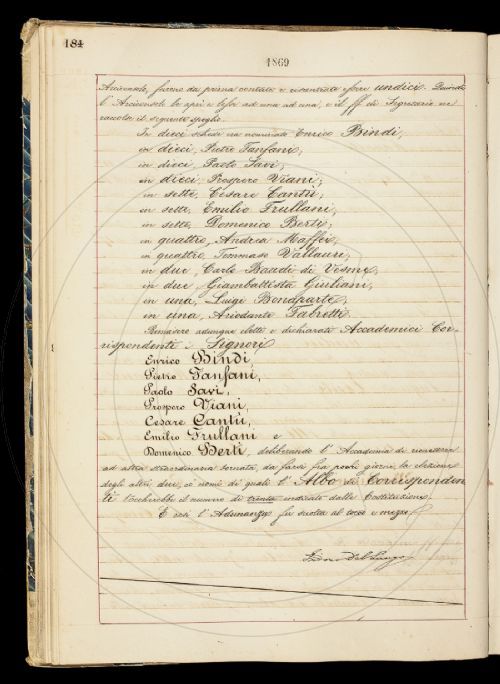 184
1869
Arciconsolo, furono da prima contate e riscontrate essere undici. Quindi
l'Arciconsolo le aprì e lesse ad una ad una, e il ff. di Segretario ne
raccolse il seguente spoglio.
In dieci schede era nominato Enrico Bindi,
in dieci, Pietro Fanfani,
in dieci, Paolo Savi,
in dieci, Prospero Viani;
in sette, Cesare Cantù,
in sette, Emilio Frullani,
in sette, Domenico Berti,
in quattro, Andrea Maffei,
in quattro, Tommaso Vallauri,
in due, Carlo Baudi di Vesme,
in due, Giambattista Giuliani,
in una, Luigi Bonaparte,
in una, Ariodante Fabretti
Rimasero adunque eletti e dichiarati Accademici Cor-
rispondenti i Signori
Enrico Bindi
Pietro Fanfani,
Paolo Savi,
Prospero Viani,
Cesare Cantù,
Emilio Frullani e
Domenico Berti, deliberando l'Accademia di rimettere
ad altra straordinaria tornata, da farsi fra pochi giorni, la elezione
degli altri dieci, co' nomi de' quali l'Albo di Corrisponden
ti toccherebbe il numero di trenta indicato dalle Costituzioni.
E così l'Adunanza fu sciolta al tocco e mezzo.
Isidoro Del Lungo